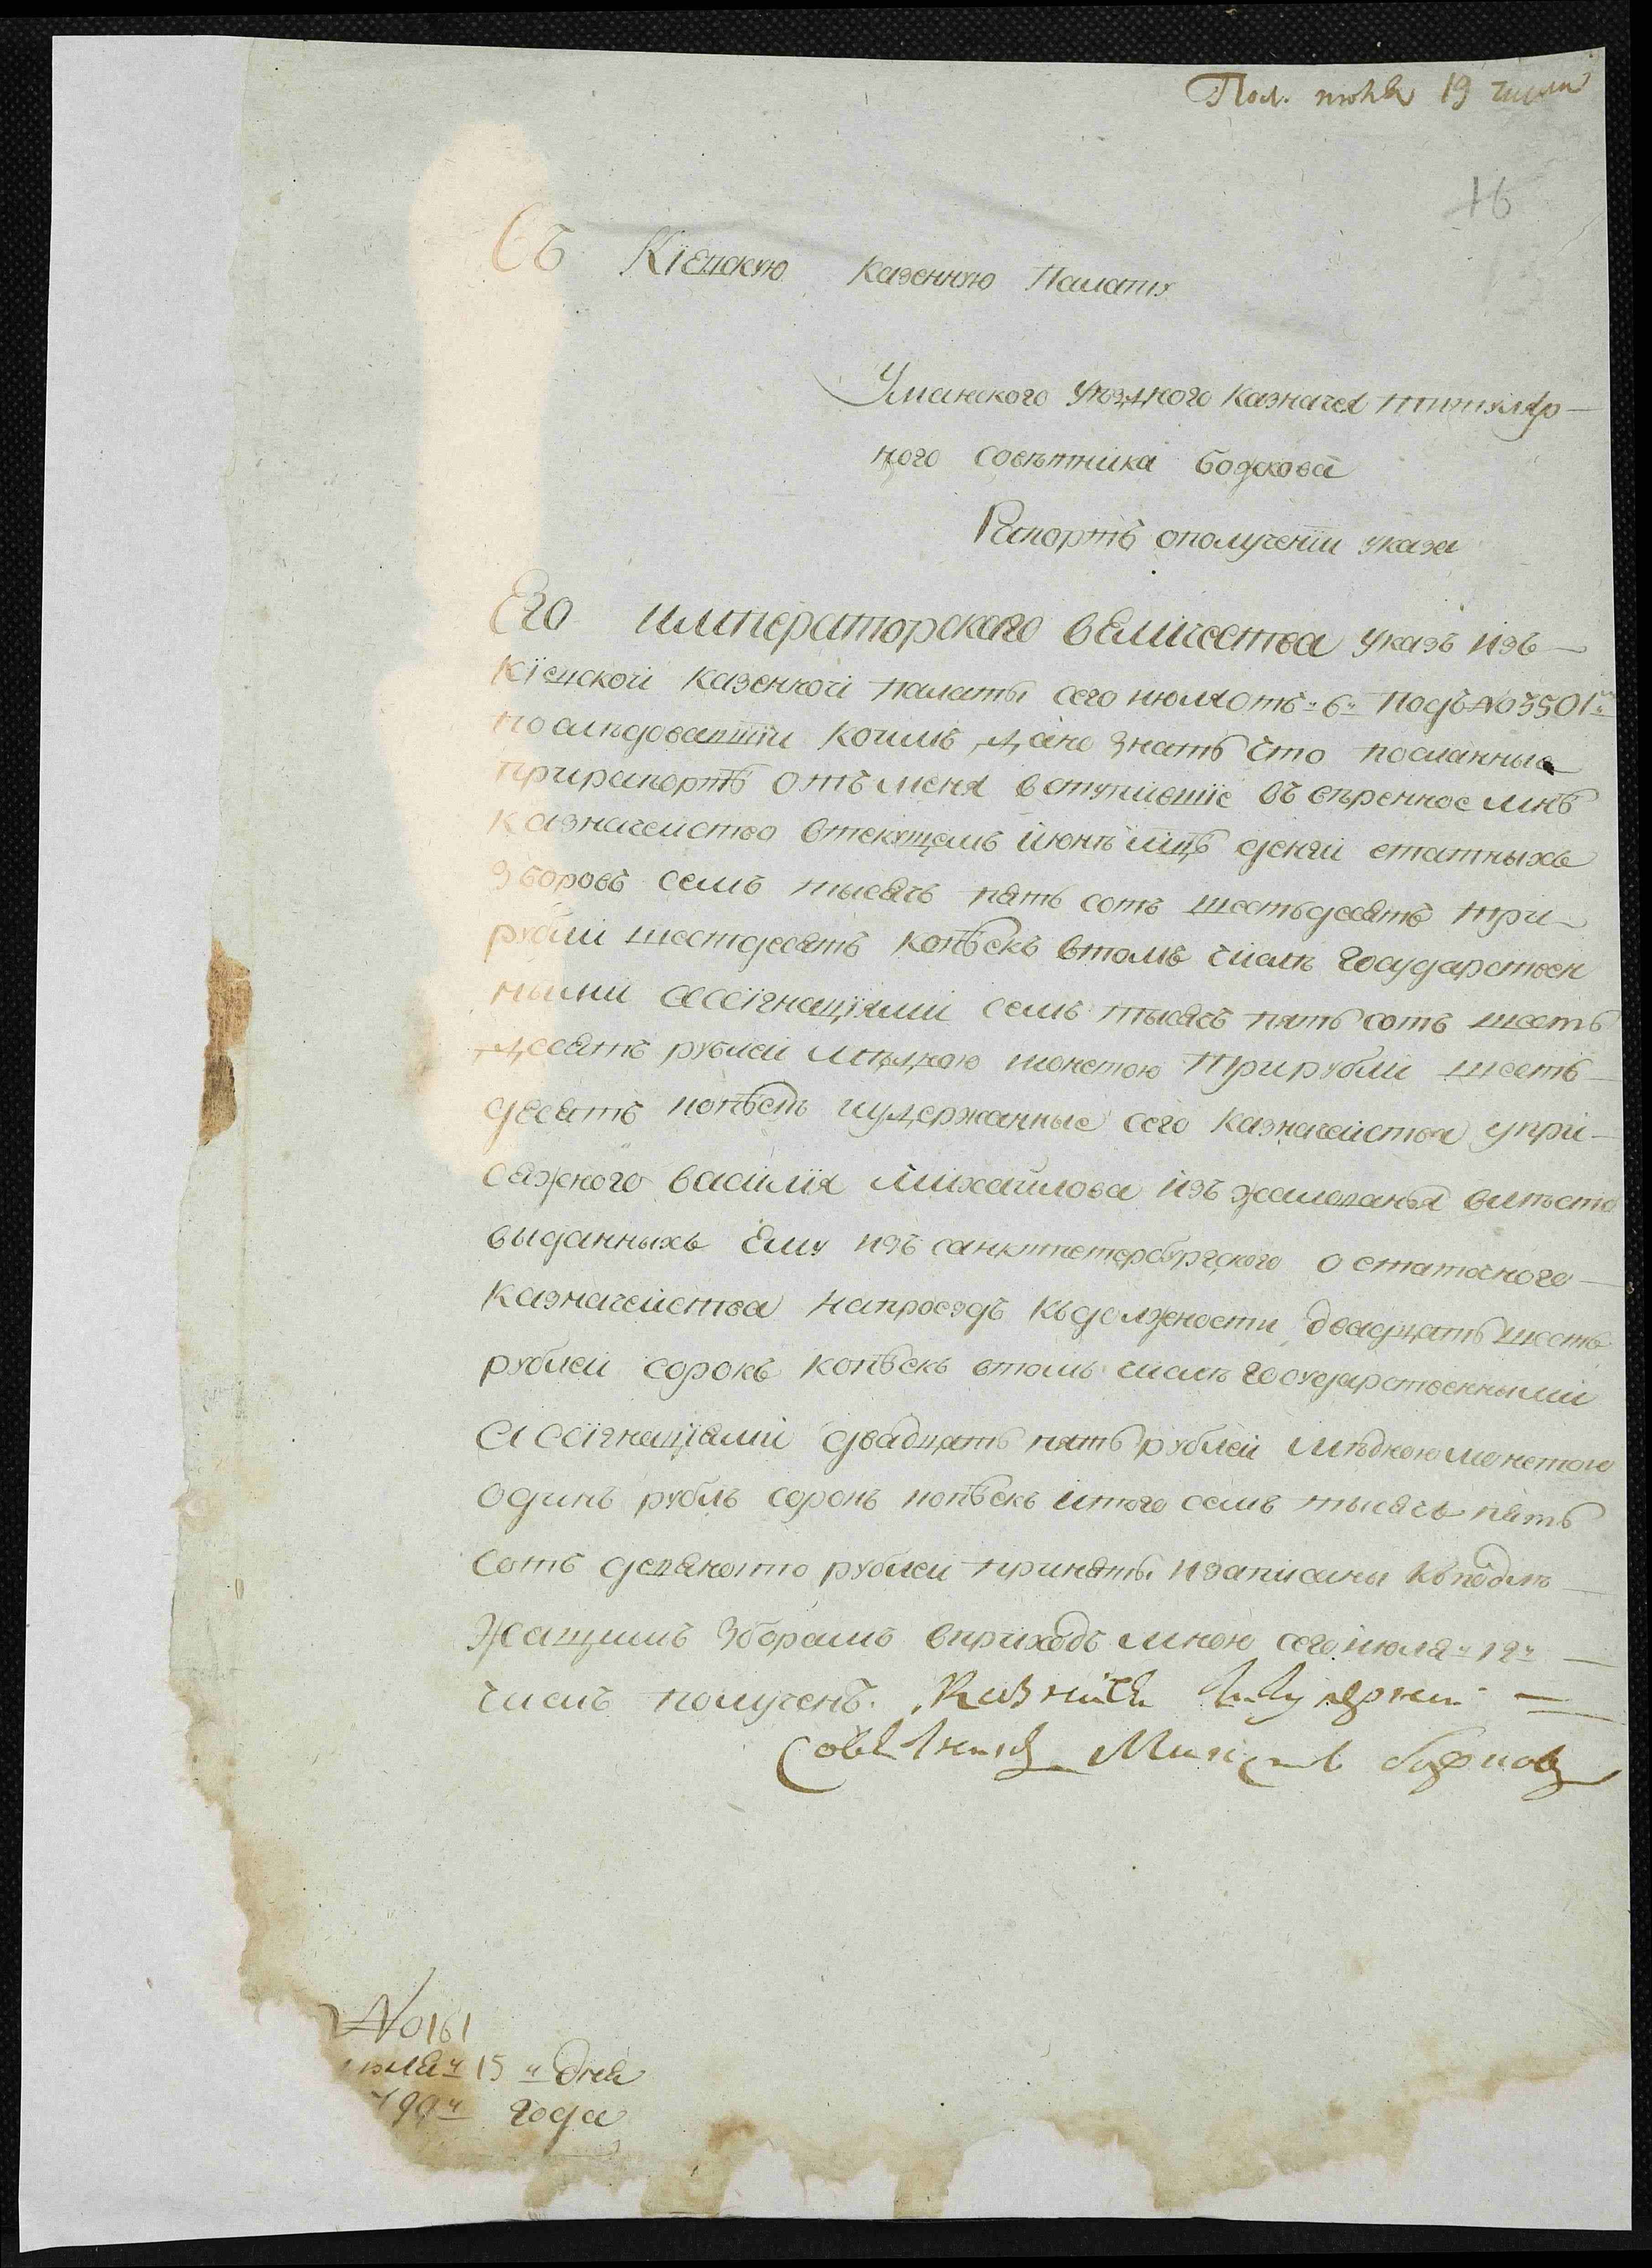 Пол. июля 19 числа
16
Въ Кіевскую Казенную Палату
Уманского уѣздного Казначея титуляр-
ного совѣтника Божкова
Рапортъ ополученіи указа
Его императорского величества указъ изъ
Кіевской Казенной палаты сего июля отъ "6" подъ №3501м
последовавшїи коимъ дано знать что посланные
прирапортѣ отъ меня вступившїе въ вѣренное мнѣ
казначейство втекущемъ июнѣ мцѣ денги статныхъ
зборовъ семъ тысячъ пять сотъ шестьдесятъ три
рубли шестдесятъ копѣекъ втомъ числѣ государствен
ными ассїгнацїями семъ тысячъ пять сотъ шесть
десятъ рублей мѣдною монетою три рубли шесть
десятъ копѣекъ иудержанные сего казначейства упри-
сяжного василїя михайлова изъ жалованья вмѣсто
выданныхъ Ему изъ санктпетербургского остаточного
казначейства напроездъ къдолжности двадцать шесть
рублей сорокъ копѣекъ втомъ числѣ государственными
ассїгнацїями двадцать пять рублей мѣдною монетою
одинъ рубль сорокъ копѣекъ итого семъ тысячъ пять
сотъ девяносто рублей приняты изаписаны кънадле-
жащимъ зборамъ вприходъ мною сего июля "12"
числъ полученъ. Казначей титулярной
Советникъ Божковъ
№161
июля "15" дня
1799" года